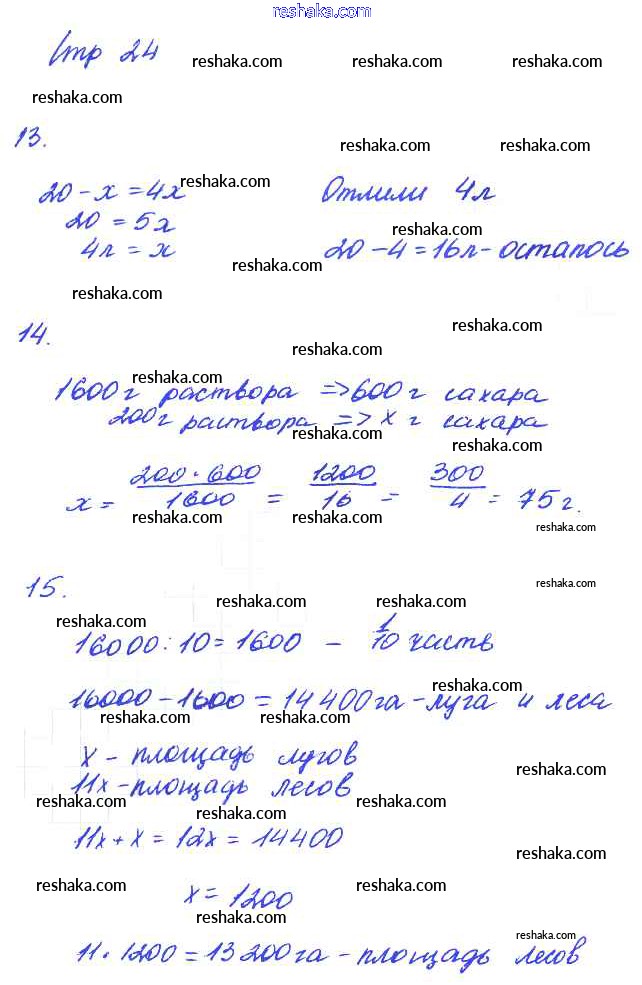 reshaka.com
Стр 24
reshaka.com reshaka.com reshaka.com
reshaka.com
13.
reshaka.com reshaka.com
reshaka.com
20 - x = 4x Отлили 4л
20 = 5x reshaka.com
4л = x 20 - 4 = 16л - осталось
reshaka.com
reshaka.com
reshaka.com
14.
reshaka.com
reshaka.com
1600г раствора => 600г сахара
200г раствора => x г сахара
reshaka.com
reshaka.com
x = 200·600/1600 = 1200/16 = 300/4 = 75г.
reshaka.com reshaka.com
reshaka.com
15.
reshaka.com
reshaka.com reshaka.com
reshaka.com
16000 : 10 = 1600 - 1/10 часть
reshaka.com
16000 - 1600 = 14400га - луга и леса
reshaka.com reshaka.com
x - площадь лугов
reshaka.com
11x - площадь лесов
reshaka.com reshaka.com
11x + x = 12x = 14400
reshaka.com
reshaka.com reshaka.com
x = 1200
reshaka.com
reshaka.com
11 · 1200 = 13200га - площадь лесов